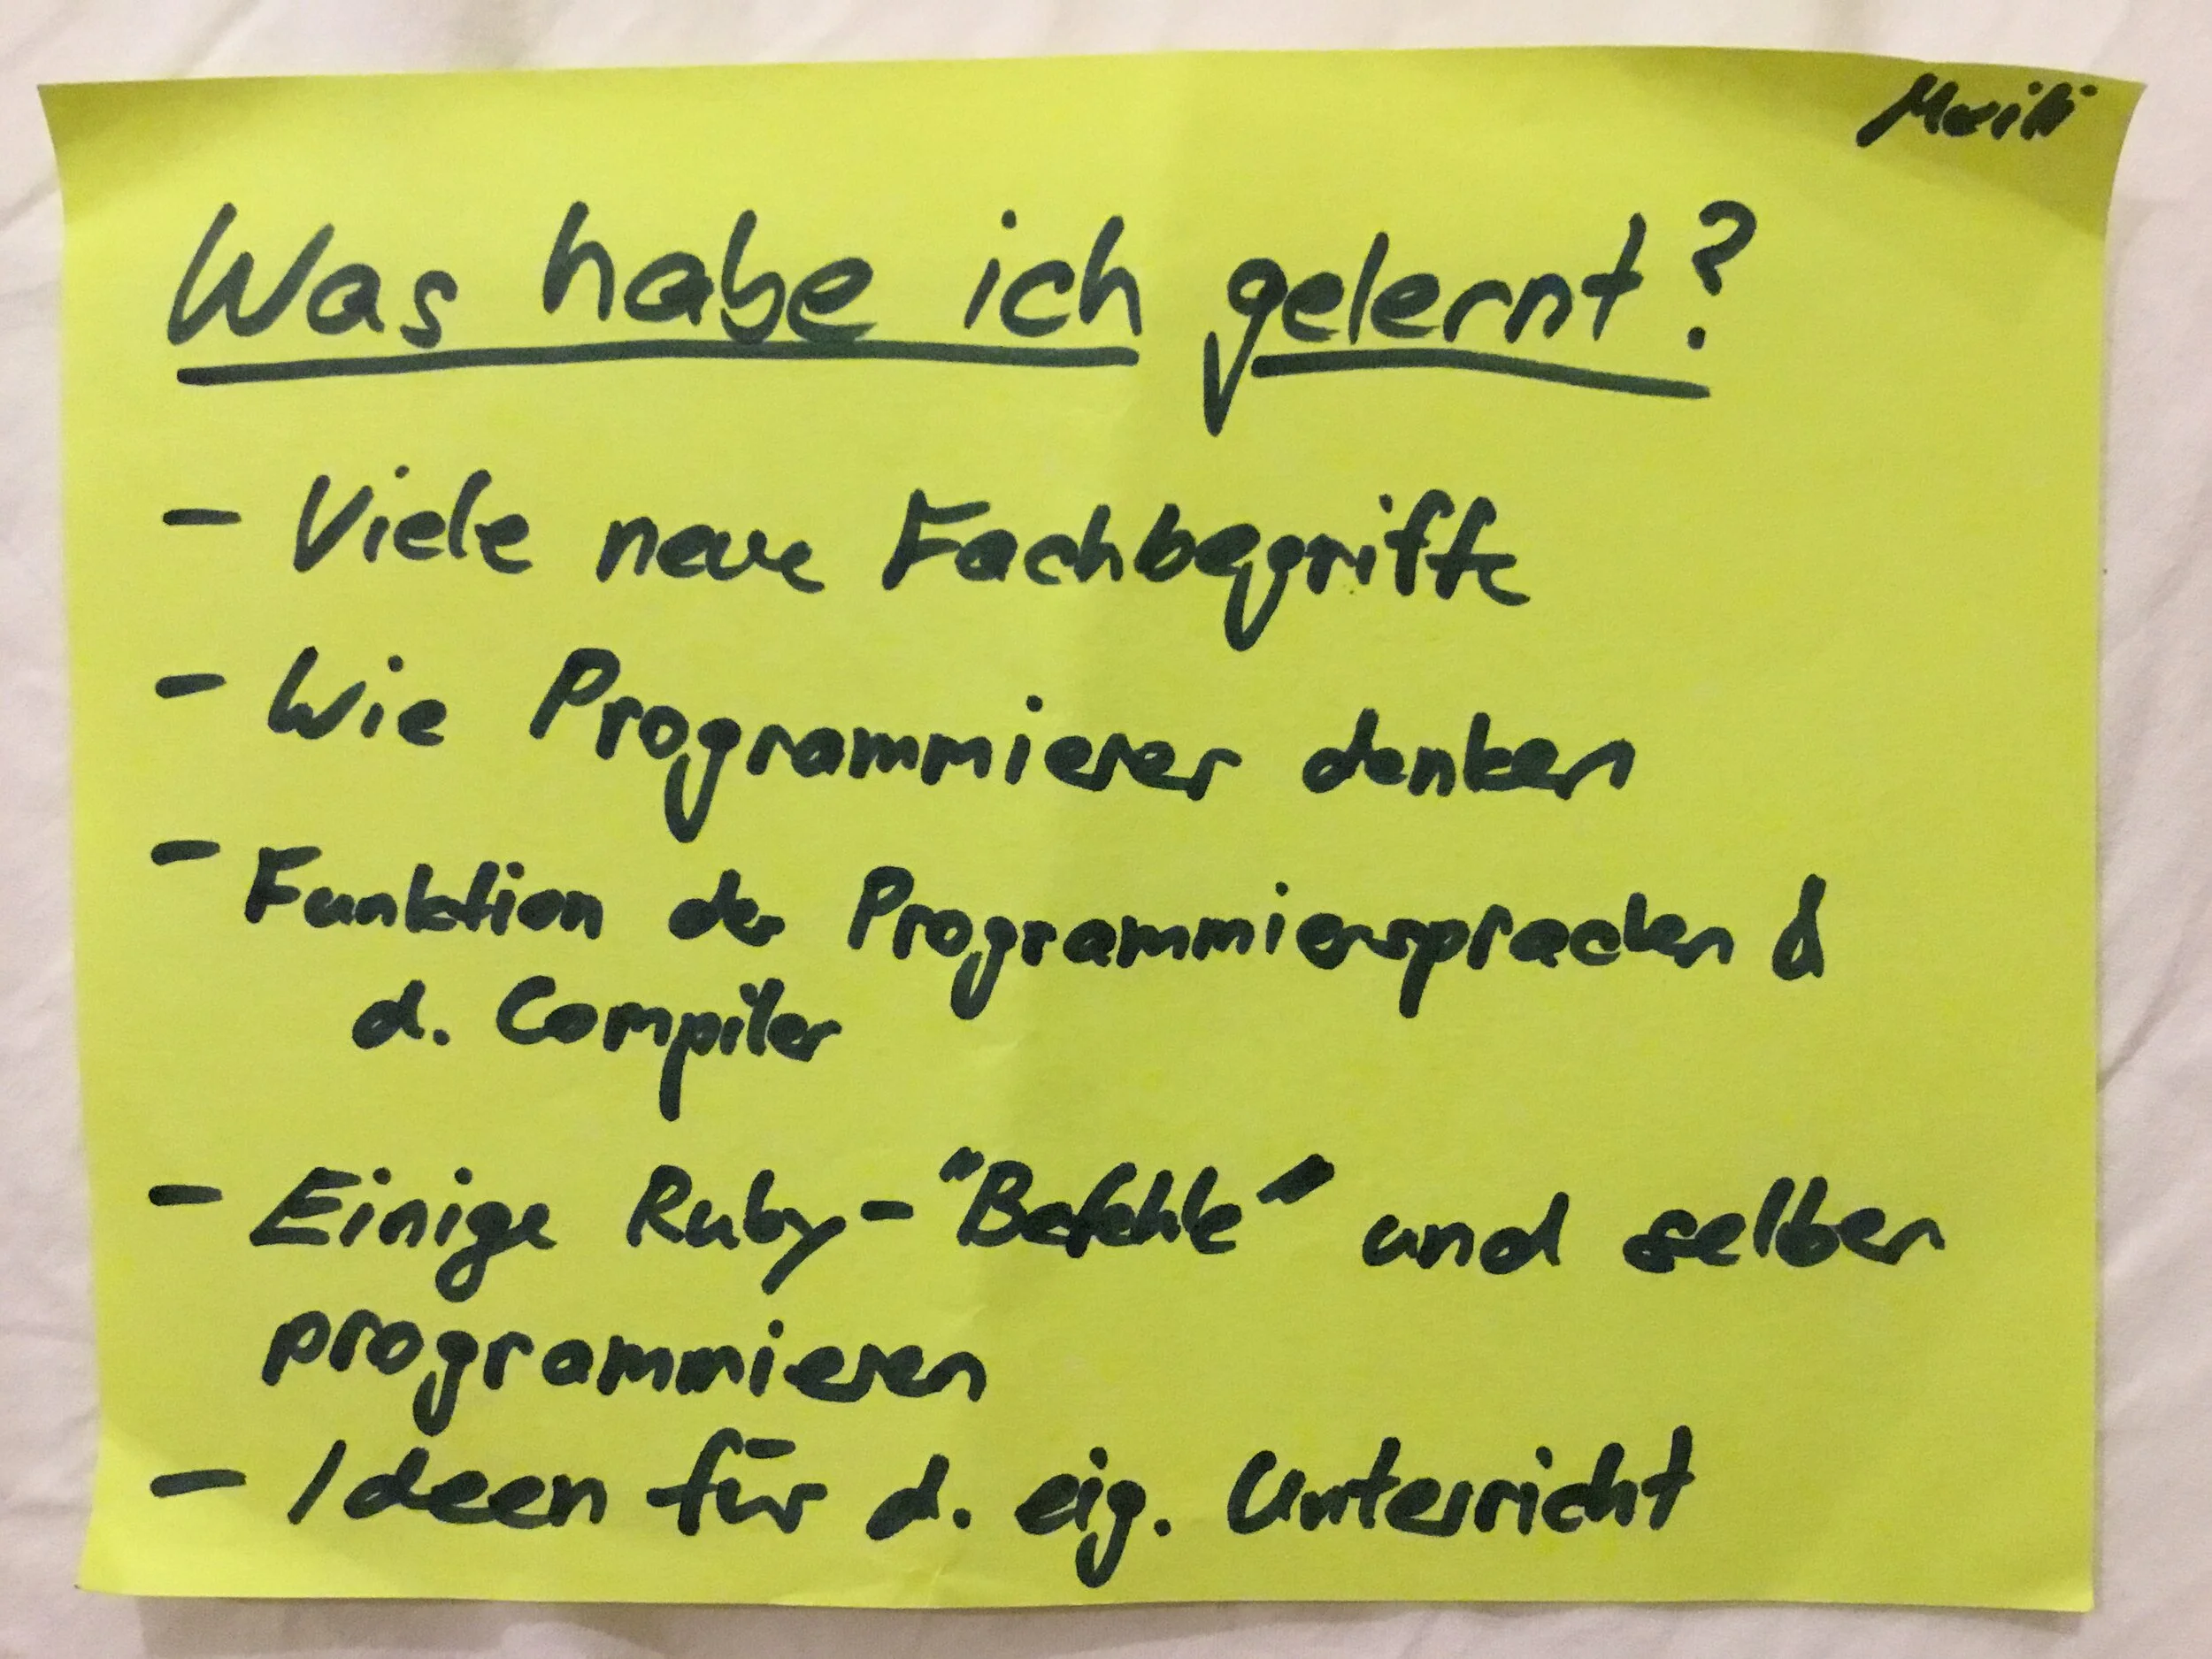 Was habe ich gelernt?
- Viele neue Fachbegriffe
- Wie Programmierer denken
- Funktion der Programmiersprachen &
d. Compiler
- Einige Ruby-"Befehle" und selber
programmieren
- Ideen für d. eig. Unterricht